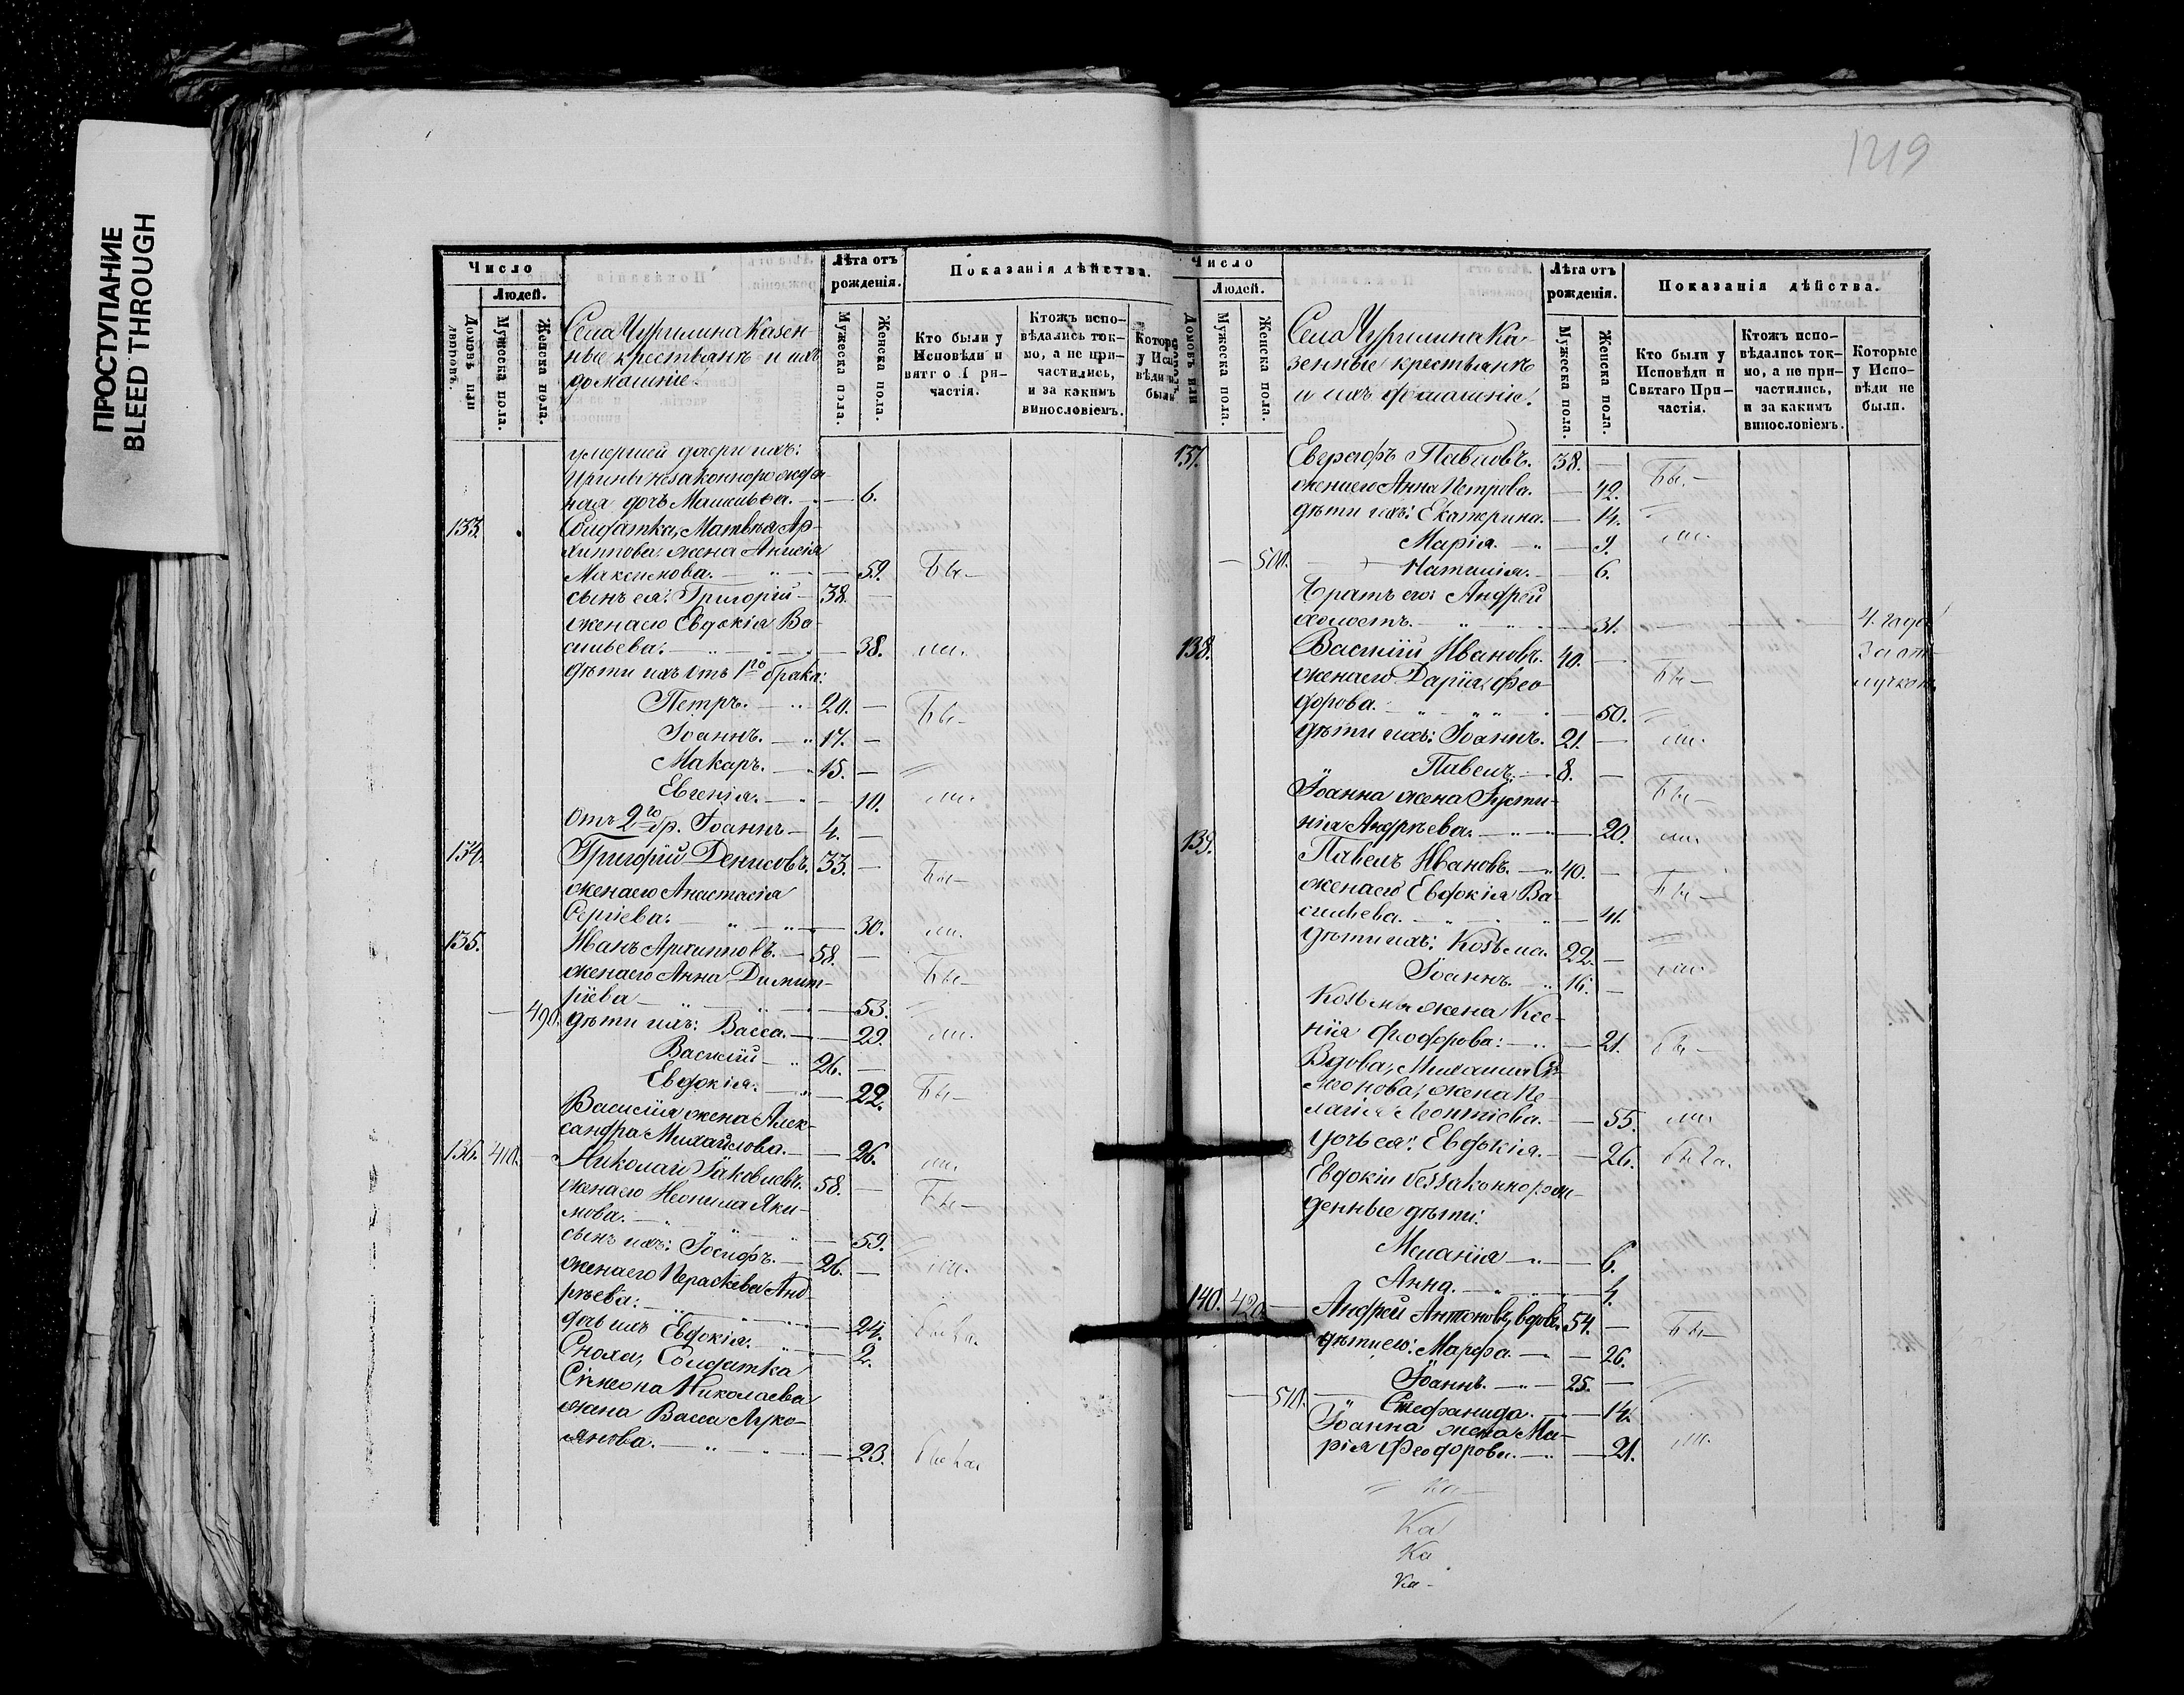 ПРОСТУПАНИЕ
BLEED THROUGH
1219
Число
Людей.
Домовъ или дворовъ.
Мужеска пола.
Женска пола.
Села Чургимина Казен-
ные крестьянъ и ихъ
домашніе.
Лѣта отъ
рожденія.
Мужеска пола.
Женска пола.
Показанія дѣйства.
Кто были у
Исповѣди и
частія.
Ктожъ испо-
вѣдались ток-
мо, а не при-
частились,
и за какимъ
винословіемъ.
умершей дочери ихъ:
Ирины незаконнорожден-
ная дочь 6.
133. Солдатка, Матвѣя Ар-
хиппова жена Анисія
Максимова. 59. Бы-
сынъ ея: Григорій 38.
жена его Евдокія Ва-
сильева. 38. ли.
дѣти ихъ отъ 1го брака:
Петръ. 20. Бы-
Іоаннъ. 17.
Макаръ. 15.
Евгенія. 10. ли.
Отъ 2го бр. Іоаннъ 4.
134. Григорій Денисовъ. 33. Бы-
жена его Анастасія
Сергіева. 30. ли.
135. Иванъ Архипповъ. 58. Бы-
жена его Анна Димит-
ріева 53.
490. дѣти ихъ: Васса. 29. ли.
Василій 26.
Евдокія. 22. Бы-
Василія жена Алек-
сандра Михайлова. 26. ли.
136. 410. Николай Іаковлевъ. 58. Бы-
жена его Неонила Яки-
мова. 59.
сынъ ихъ: Іосифъ. 26. ли.
жена его Параскева Анд-
рѣева. 24. была.
дочь ихъ Евдокія. 2.
Сноха, Солдатка
Сѵмеона Николаева
жена Васса Луко-
янова. 23. была
Число
Людей.
Домовъ или
Мужеска пола.
Женска пола.
Села Чургимина Ка-
зенные крестьянъ
и ихъ домашніе.
Лѣта отъ
рожденія.
Мужеска пола.
Женска пола.
Показанія дѣйства.
Кто были у
Исповѣди и
Святаго При-
частія.
Ктожъ испо-
вѣдались ток-
мо, а не при-
частились,
и за какимъ
винословіемъ.
Которые
у Испо-
вѣди не
были.
137. Евграфъ Павловъ. 38. Бы.-
жена его Анна Петрова. 42.
дѣти ихъ: Екатерина. 14.
Марія. 9. ли.
500. Наталія. 6.
Братъ его: Андрей
холостъ. 31. 4. года
138. Василій Ивановъ. 40. За отлучкою.
жена его Дарія Фео- Бы-
дорова. 50.
дѣти ихъ: Іоаннъ. 21. ли.
Павелъ. 8.
Іоанна жена Іусти- Бы-
нія Андрѣева. 20. ли.
139. Павелъ Ивановъ. 40.
жена его Евдокія Ва- Бы-
сильева. 41.
дѣти ихъ: Козьма. 22. ли.
Іоаннъ. 16.
Козьмы жена Ксе-
нія Феодорова: 21. Бы-
Вдова, Михаила Сѵ-
меонова, жена Пе-
лагія Леонтіева. 55. ли.
дочь ея: Евдокія. 26. была.
Евдокіи беззаконнорож-
денные дѣти:
Меланія 6.
Анна. 4.
140. 420. Андрей Антоновъ, вдовъ. 54. Бы-
дѣти его: Марфа. 26.
Іоаннъ. 25.
510. Стефанида. 14.
Іоанна жена Ма-
рія Феодорова. 21. ли.
Ка
Ка
Ка
Ка